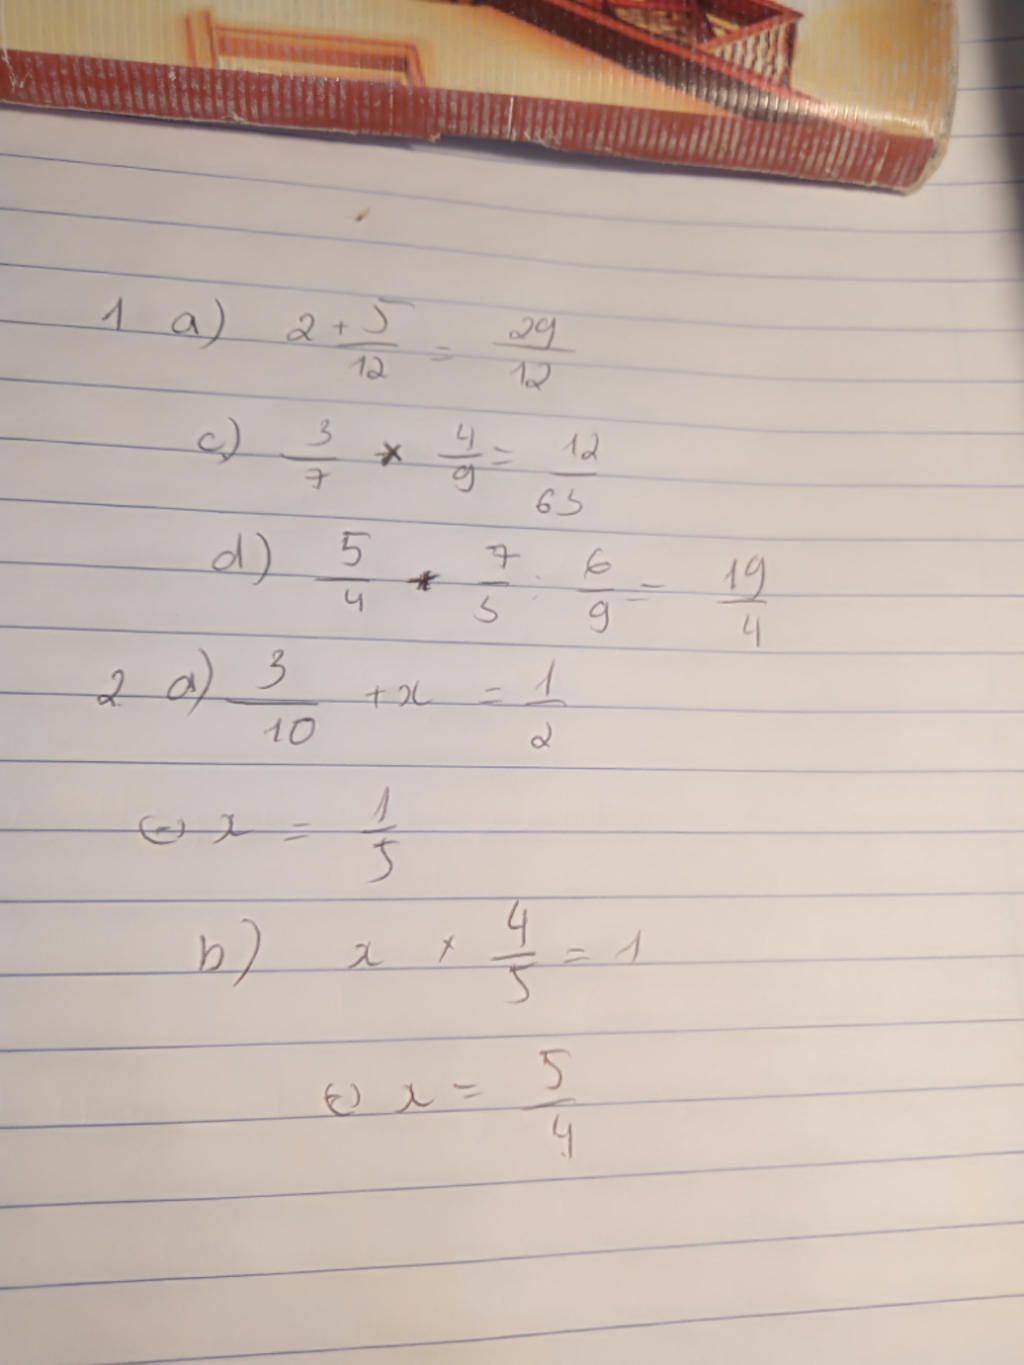 1 a) 2 + 5/12 = 29/12
c) 3/7 * 4/9 = 12/63
d) 5/4 * 7/5 : 6/9 = 19/4
2 a) 3/10 + x = 1/2
⇔ x = 1/5
b) x × 4/5 = 1
⇔ x = 5/4